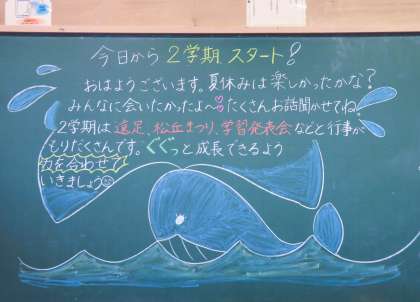 今日から 2学期 スタート!
おはようございます。夏休みは楽しかったかな?
みんなに会いたかったよ〜たくさんお話聞かせてね。
2学期は遠足、松丘まつり、学習発表会などと行事が
もりだくさんです。ぐぐっと成長できるよう
力を合わせて
いきましょう